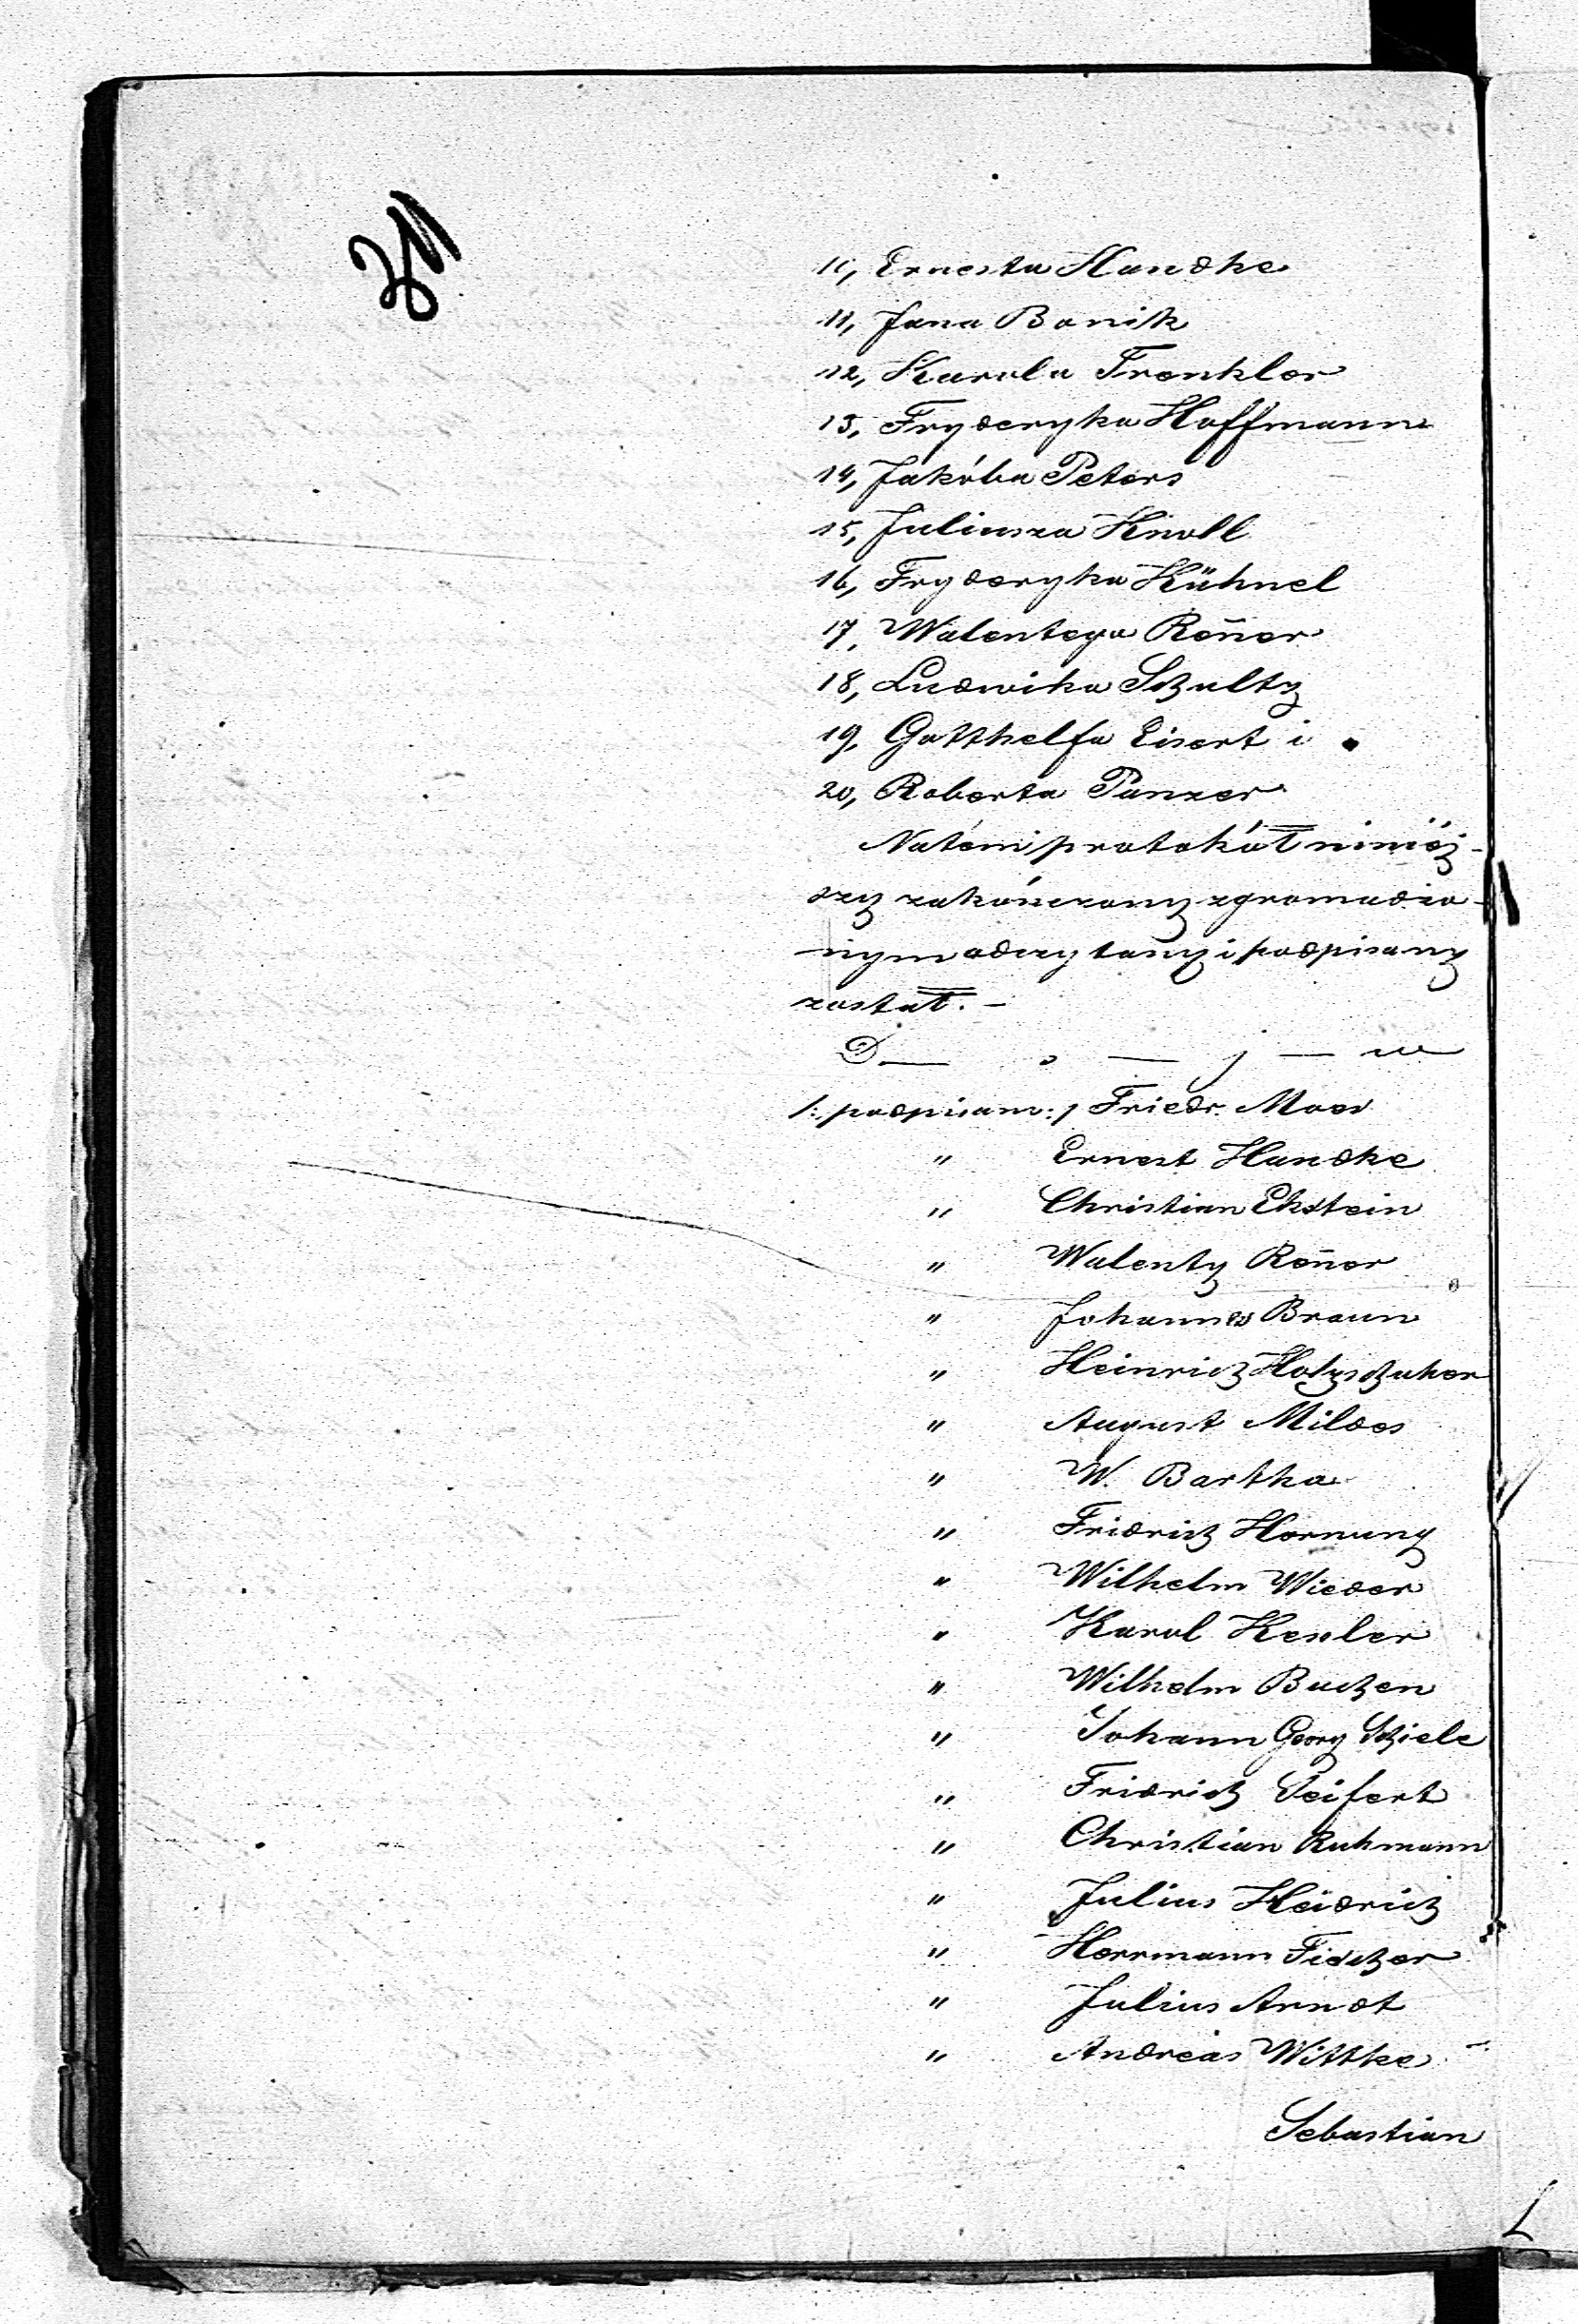 10, Ernesta Handke
11, Jana Bonik
12, Karola Frenkler
13, Fryderyka Hoffmann
14, Jakóba Peters
15, Juliusza Knoll
16, Fryderyka Kühnel
17, Walentego Reñer
18, Ludwika Schultz
19, Gotthelfa Eisert i
20, Roberta Panzer
Na tém protokół niniéj-
szy zakończony zgromadzo-
nym odczytany i podpisany
został. —
D — o — j — w
/: podpisano :/ Friedr. Moes
" Ernest Handke
" Christian Ekstein
" Walenty Reñer
" Johannes Braun
" Heinrich Holzschuher
" August Mildes
" W. Bartha
" Fridrich Hornung
" Wilhelm Wieder
" Karol Kesler
" Wilhelm Buchen
" Johann Georg Schiele
" Fridrich Seifert
" Christian Ruhmann
" Julius Heidrich
" Herrmann Fischer
" Julius Arndt
" Andreas Wittke
Sebastian